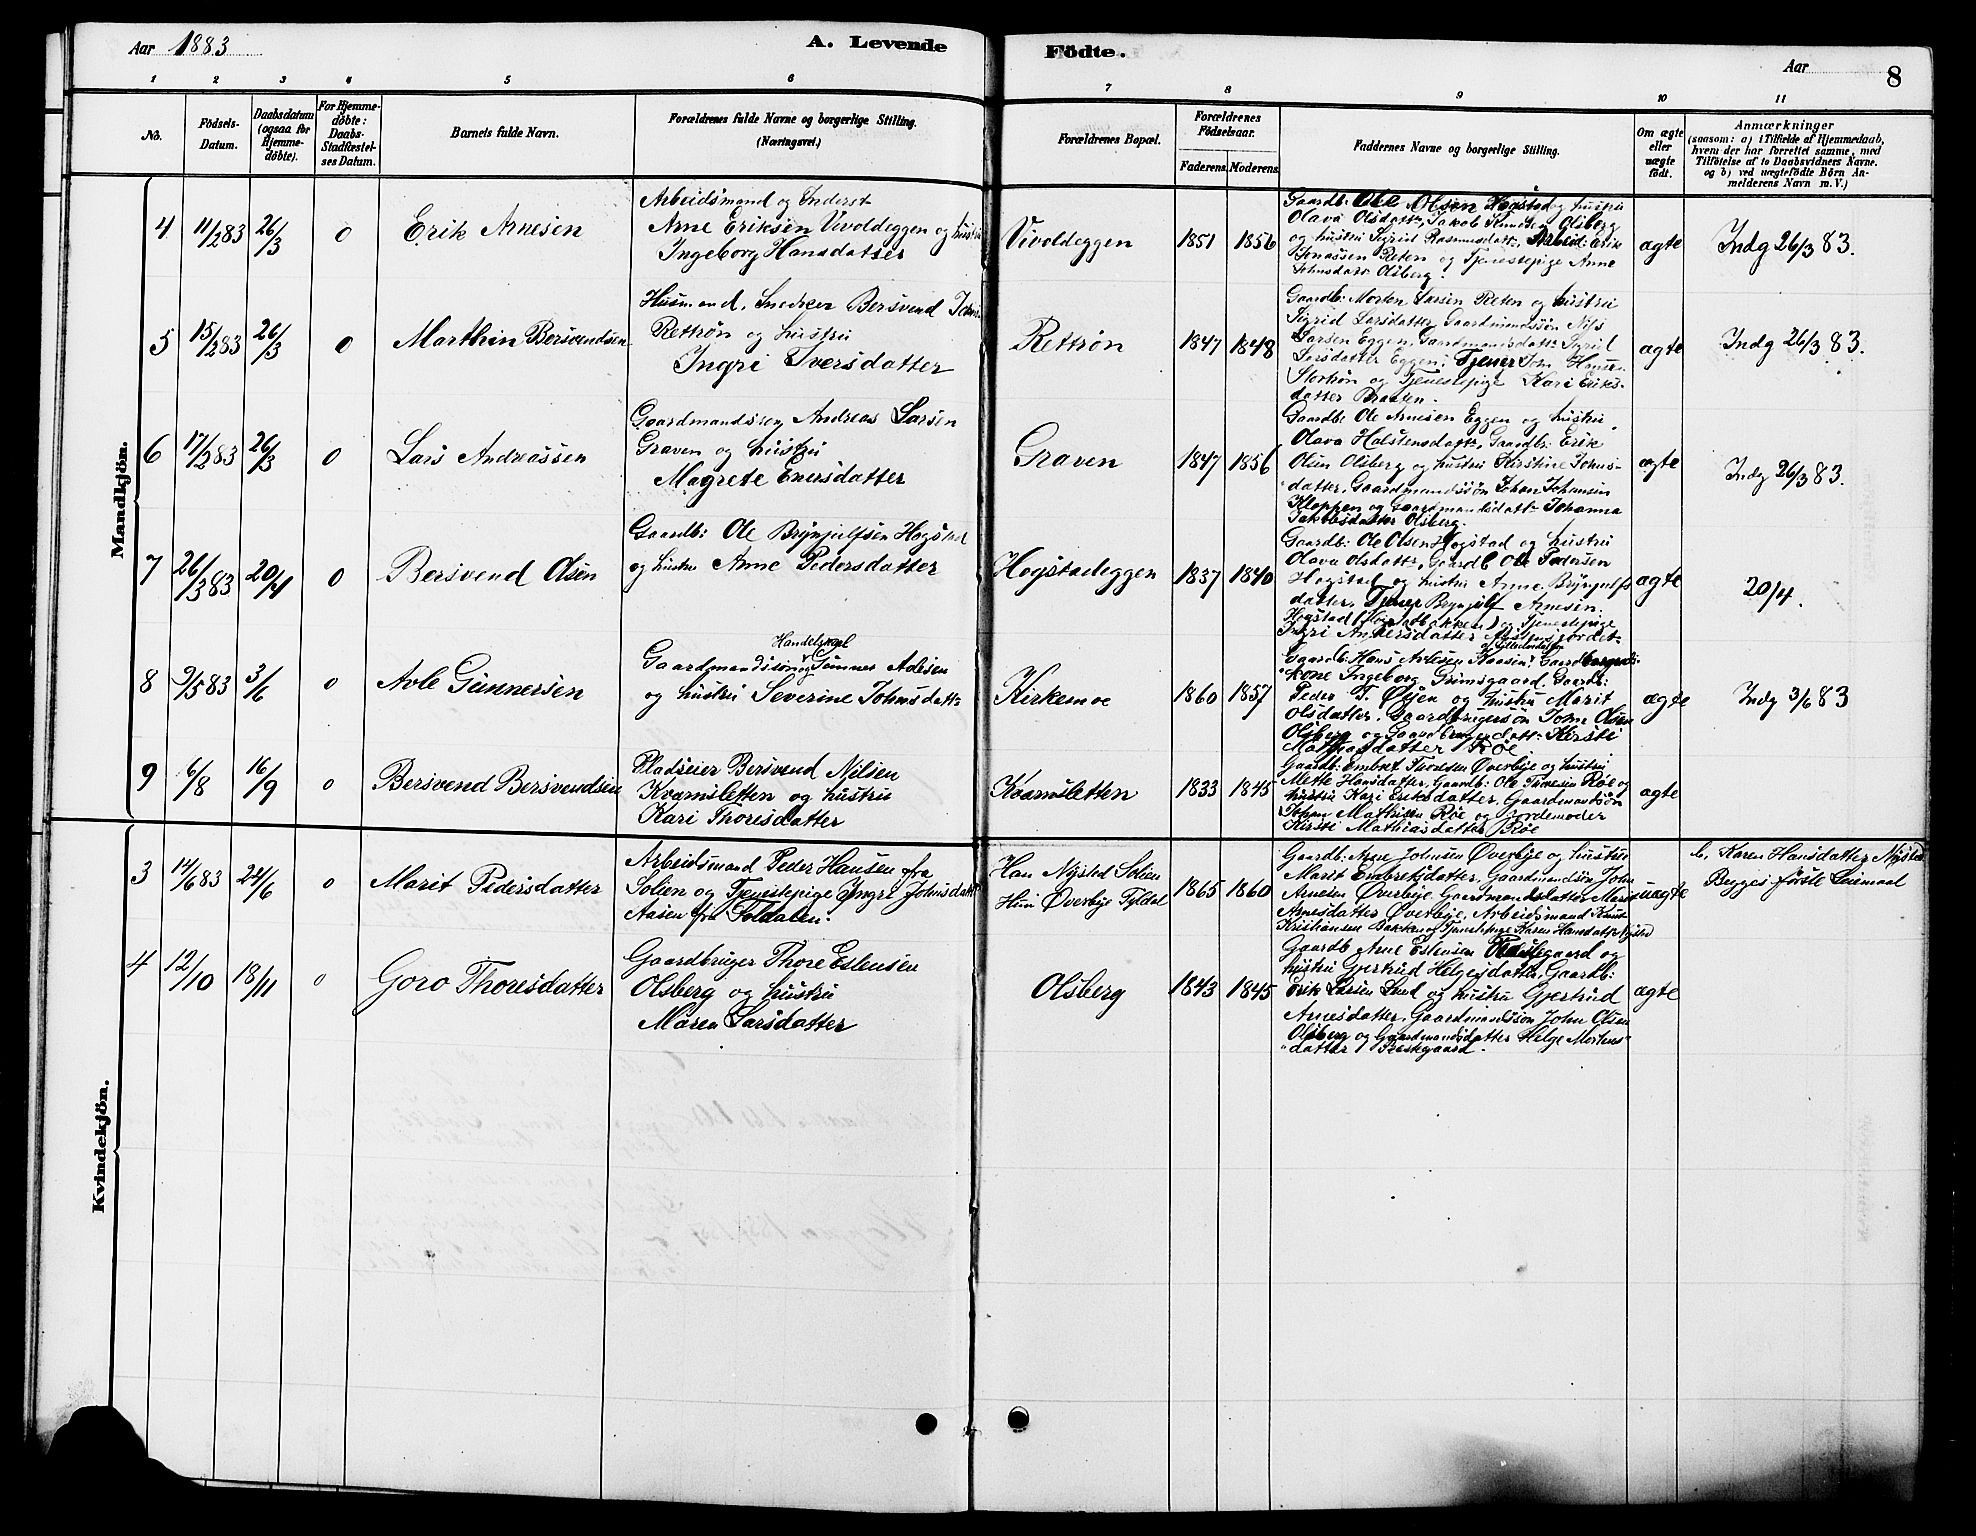 Aar 1883
A. Levende Födte.
Aar
8
1 2 3 4 5 6 7 8 9 10 11
No.
Födsels-
Datum.
Daabsdatum
(ogsaa for
Hjemme-
döbte).
For Hjemme-
döbte:
Daabs-
Stadfæstel-
ses Datum.
Barnets fulde Navn.
Forældrenes fulde Navne og borgerlige Stilling.
(Næringsvei.)
Forældrenes Bopæl.
Forældrenes
Födselsaar.
Faderens. Moderens.
Faddernes Navne og borgerlige Stilling.
Om ægte
eller
uægte
födt.
Anmærkninger
(saasom: a) i Tilfælde af Hjemmedaab,
hvem der har forrettet samme, med
Tilföielse af to Daabsvidners Navne.
og b) ved uægtefödte Börn An-
melderens Navn m. V.)
Mandkjön.
4
11/2 83
26/3
0
Erik Arnesen
Arbeidsmand og Inderst
Arne Eriksen Vivoldeggen og hustru
Ingeborg Hansdatter
Vivoldeggen
1851
1856
Gaardb: Ole Olsen Hogstad og hustru
Olava Olsdatt:, Jakob Knudsen Olsberg
og hustru Sigrid Rasmusdatt:, Arbeid: Erik
Jonassen Reten og Tjenestepige Anne
Johnsdatt: Olsberg.
ægte
Indg 26/3 83.
5
15/2 83
26/3
0
Marthin Bersvendsen
Husmand, Snedker Bersvend
Rettrøn og hustru
Ingri Iversdatter
Rettrøn
1847
1848
Gaardb: Morten Larsen Reten og hustru
Sigrid Larsdatter, Gaardmandssøn Nils
Larsen Eggen, Gaardmandsdatt: Sigrid
Larsdatter Eggen, Tjener John Hansen
Storrøn og Tjenestepige Kari Eriks-
datter Braaten.
ægte
Indg 26/3 83.
6
17/2 83
26/3
0
Lars Andreassen
Gaardmandssøn Andreas Larsen
Graven og hustru
Magrete Enersdatter
Graven
1847
1856
Gaardb: Ole Arnesen Eggen og hustru
Olava Halstensdatt:, Gaardb: Erik
Olsen Olsberg og hustru Kirstine Johns-
datter, Gaardmandssøn Johan Johansen
Kloppen og Gaardmandsdatt: Johanna
Jakobsdatter Olsberg.
ægte
Indg 26/3 83.
7
26/3 83
20/4
0
Bersvend Olsen
Gaardb: Ole Brynjulfsen Hogstad
og hustru Anne Pedersdatter
Hogstadeggen
1837
1840
Gaardb: Ole Olsen Hogstad og hustru
Olava Olsdatt:, Gaardb Ole Pedersen
Hogstad og hustru Anne Brynjulfs
datter, Tjener Brynjulf Arnesen
Hogstad (Hogstadbakken) og Tjenestepige
Ingri Ankersdatter
ægte
20/4.
8
9/5 83
3/6
0
Avle Gunnersen
Handelskarl
Gaardmandssøn og Gunner Avlesen
og hustru Severine Johnsdatt:
Kirkemoe
1860
1857
Gaardb: Hans Avlesen Kaasen, Gaardbruger-
kone Ingeborg Grimsgaard, Gaardb:
Peder T. Øien og hustru Marit
Olsdatter, Gaardbrugersøn John Olsen
Olsberg og Gaardbrugerdatt: Kirsti
Mathiasdatter Røe.
ægte
Indg 3/6 83
9
6/8
16/9
0
Bersvend Bersvendsen
Pladseier Bersvend Nilsen
Kvarnsletten og hustru
Kari Thoresdatter
Kvarnsletten
1833
1845
Gaardb: Embret Thoresen Øverbye og hustru
Mette Hansdatter, Gaardb: Ole Thoresen Røe og
hustru Kari Eriksdatter, Gaardmandssøn
Johan Mathisen Røe og Jordemoder
Kirsti Mathiasdatter Røe
ægte
Kvindekjön.
3
14/6 83
24/6
0
Marit Pedersdatter
Arbeidsmand Peder Hansen fra
Solien og Tjenestepige Ingri Johnsdatt
Aasen fra Toldalen.
Han Nystad Solien
Hun Øverbye Tyldal
1865
1860
Gaardb: Arne Johnsen Øverbye og hustru
Marit Embretsdatter, Gaardmandssøn John
Arnesen Øverbye, Gaardmandsdatter Marit
Arnesdatter Øverbye, Arbeidsmand Knut
Kristiansen Bakken og Tjenstepige Karen Hansdatt Nystad
uægte
b, Karen Hansdatter Nystad
Begges første Leiemaal
4
12/10
18/11
0
Goro Thoresdatter
Gaardbruger Thore Estensen
Olsberg og hustru
Maren Larsdatter
Olsberg
1843
1845
Gaardb Arne Estensen Præstegaard og
hustru Gjertrud Helgesdatter, Gaardb:
Erik Larsen Lund og hustru Gjertrud
Arnesdatter, Gaardmandssøn John Olsen
Olsberg og Gaardmandsdatter Helge Mortens-
datter Præstgaard.
ægte